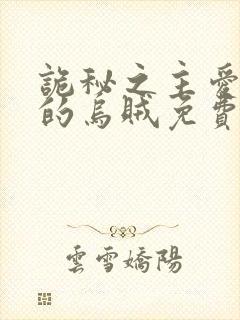 詭秘之主愛
的烏賊免費
雲雪嬌陽